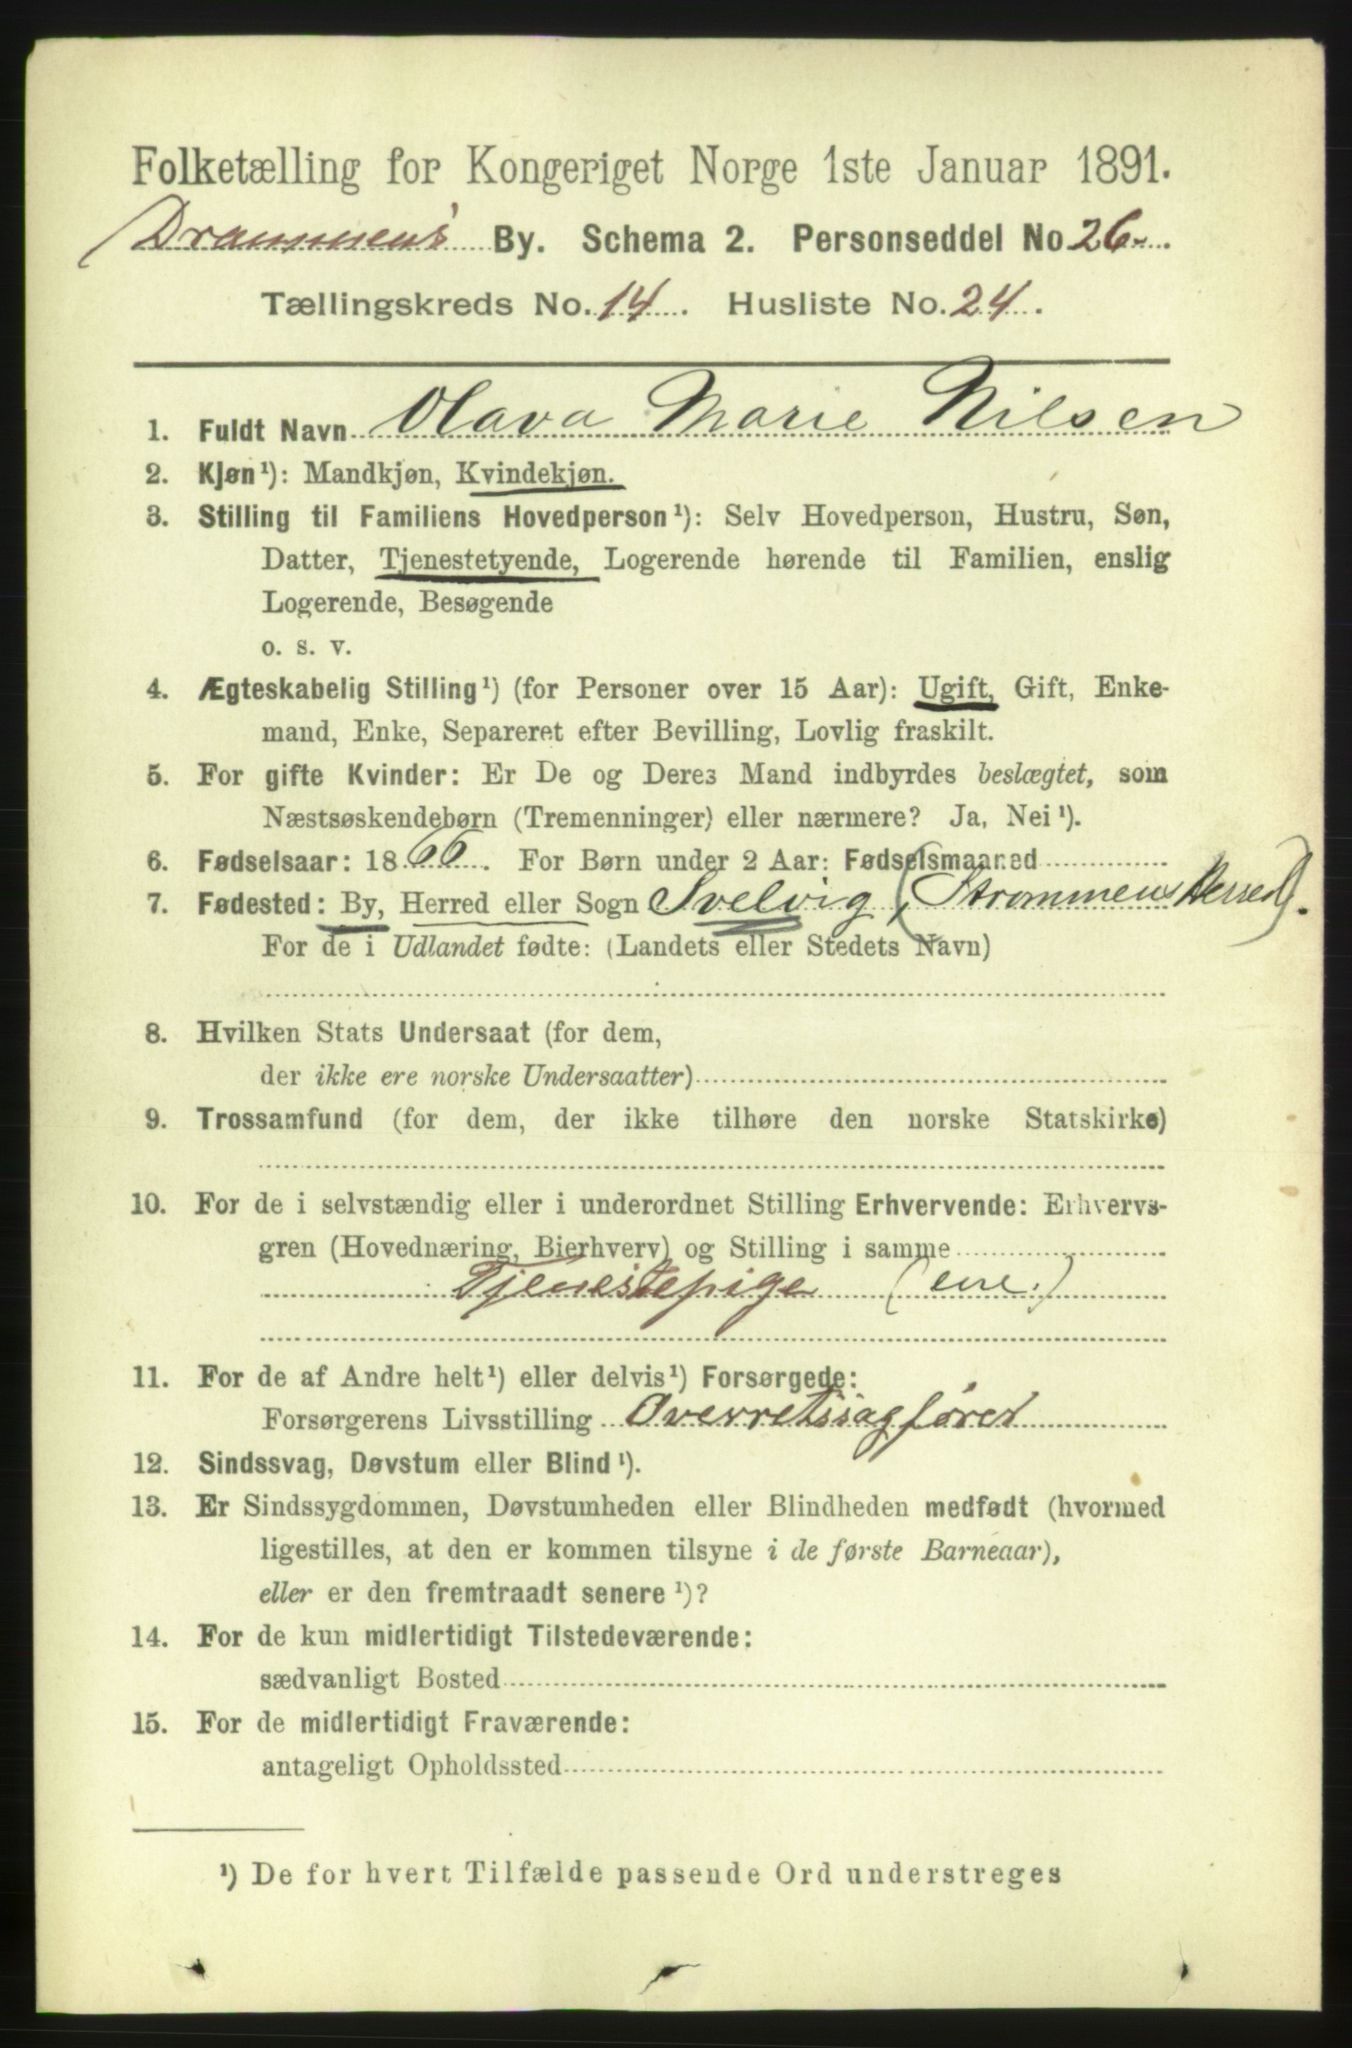 Folketælling for Kongeriget Norge 1ste Januar 1891.
Drammens By. Schema 2. Personseddel No 26
Tællingskreds No. 14. Husliste No. 24.
1. Fuldt Navn Olava Marie Nilsen
2. Kjøn¹): Mandkjøn, Kvindekjøn.
3. Stilling til Familiens Hovedperson¹): Selv Hovedperson, Hustru, Søn,
Datter, Tjenestetyende, Logerende hørende til Familien, enslig
Logerende, Besøgende
o. s. v.
4. Ægteskabelig Stilling¹) (for Personer over 15 Aar): Ugift, Gift, Enke-
mand, Enke, Separeret efter Bevilling, Lovlig fraskilt.
5. For gifte Kvinder: Er De og Deres Mand indbyrdes beslægtet, som
Næstsøskendebørn (Tremenninger) eller nærmere? Ja, Nei¹).
6. Fødselsaar: 1866. For Børn under 2 Aar: Fødselsmaaned
7. Fødested: By, Herred eller Sogn Svelvig, (Strømmens Herred).
For de i Udlandet fødte: (Landets eller Stedets Navn)
8. Hvilken Stats Undersaat (for dem,
der ikke ere norske Undersaatter)
9. Trossamfund (for dem, der ikke tilhøre den norske Statskirke)
10. For de i selvstændig eller i underordnet Stilling Erhvervende: Erhvervs-
gren (Hovednæring, Bierhverv) og Stilling i samme
Tjenestepige
11. For de af Andre helt¹) eller delvis¹) Forsørgede:
Forsørgerens Livsstilling Overretssagfører
12. Sindssvag, Døvstum eller Blind¹).
13. Er Sindssygdommen, Døvstumheden eller Blindheden medfødt (hvormed
ligestilles, at den er kommen tilsyne i de første Barneaar),
eller er den fremtraadt senere¹)?
14. For de kun midlertidigt Tilstedeværende:
sædvanligt Bosted
15. For de midlertidigt Fraværende:
antageligt Opholdssted
¹) De for hvert Tilfælde passende Ord understreges